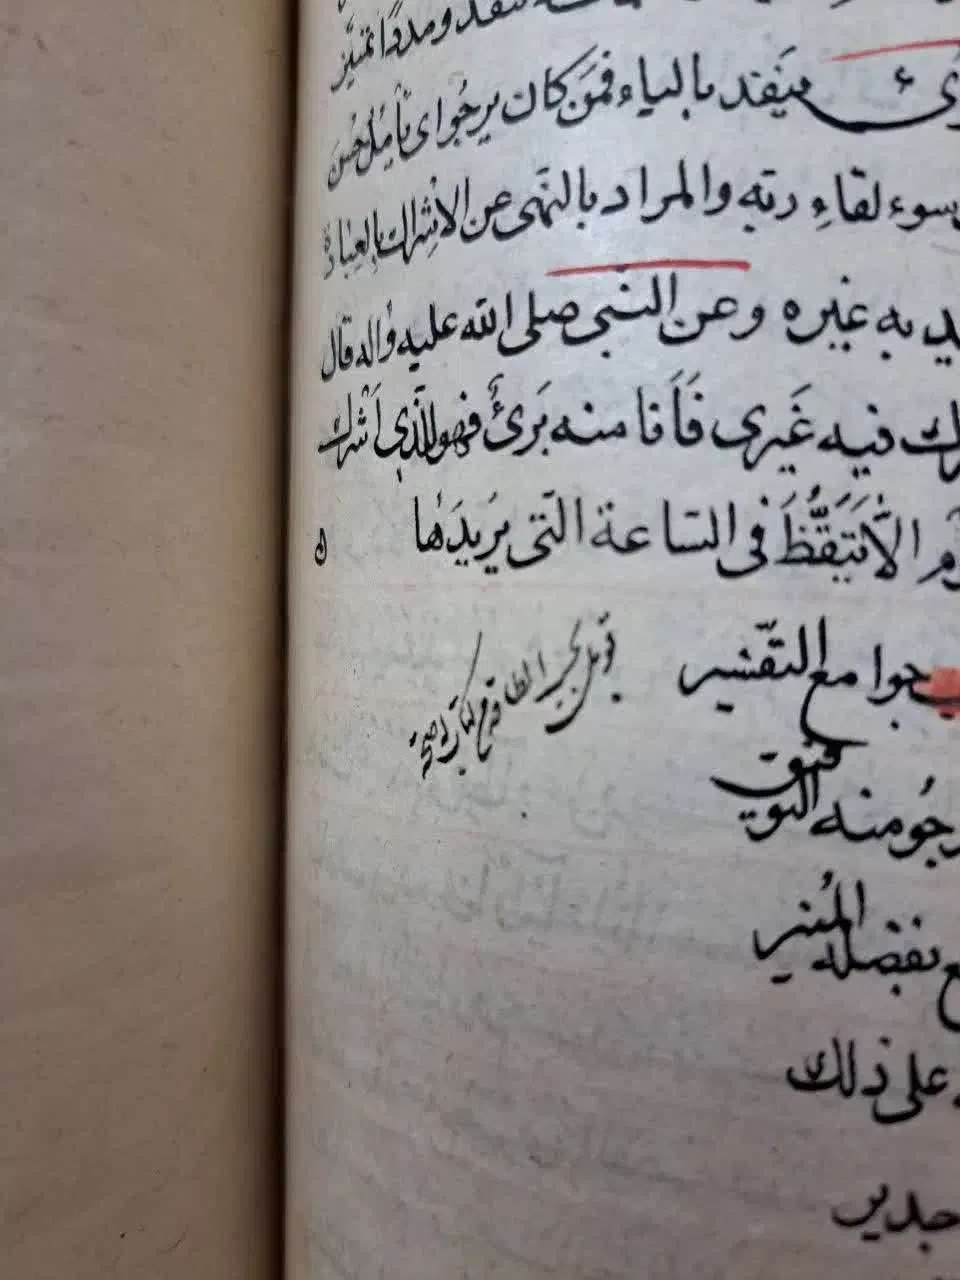 تنفد ومددا تميز
ينفد بالياء فمن كان يرجوا اى يأمل حسن
سوء لقاء ربه والمراد بالنهى عن الاشراك بالعبادة
يد به غيره وعن النبى صلى الله عليه واله قال
فيه غيرى فأنا منه برئ فهو للذي اشرك
الا تيقظ فى الساعة التى يريدها
جوامع التفسير
منه التوفيق
بفضله المنير
على ذلك
جدير